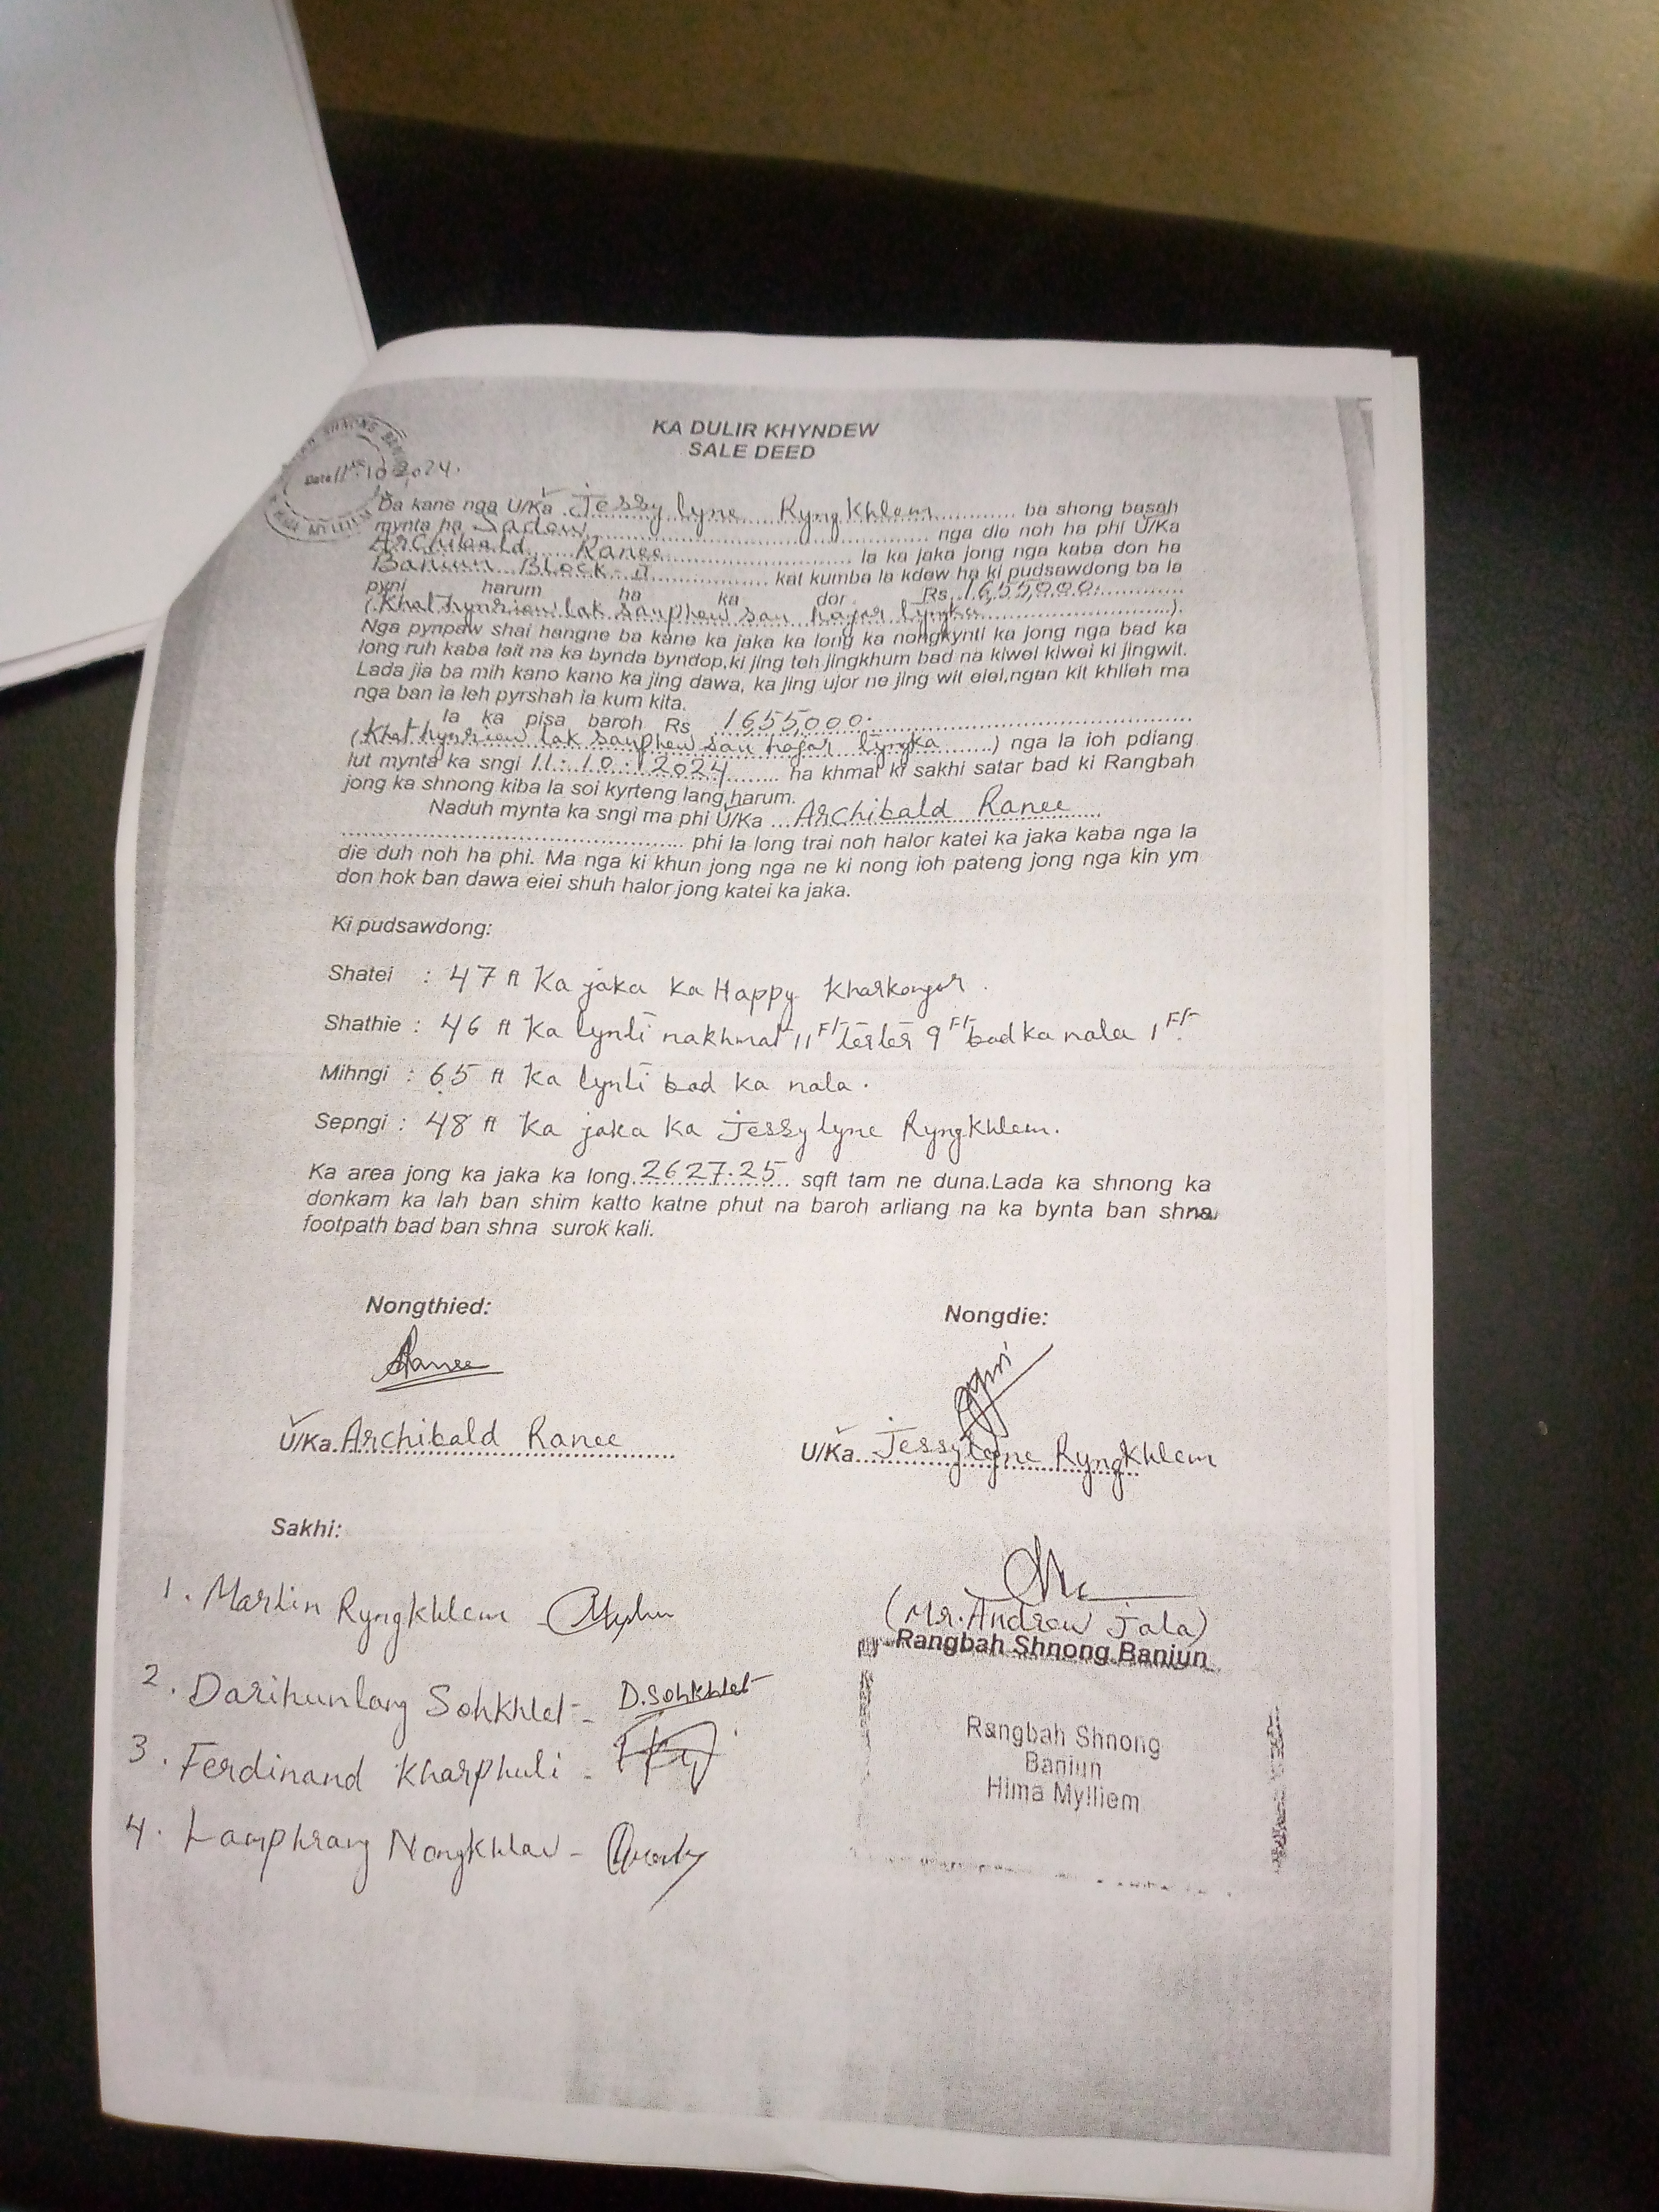 KA DULIR KHYNDEW
SALE DEED
SHNONG
Date 11.10.2024.
Da kane nga U/Ka Jessylyne Ryngkhlem ba shong basah
mynta ha Sadew, nga die noh ha phi U/Ka
Archibald Ranee la ka jaka jong nga kaba don ha
Baniun Block-A kat kumba la kdew ha ki pudsawdong ba la
pyni harum ha ka dor Rs 16,55,000.
(Khathynriew lak sanphew san hajar lyngka).
Nga pynpaw shai hangne ba kane ka jaka ka long ka nongkynti ka jong nga bad ka
long ruh kaba lait na ka bynda byndop,ki jing teh jingkhum bad na kiwei kiwei ki jingwit.
Lada jia ba mih kano kano ka jing dawa, ka jing ujor ne jing wit eiei,ngan kit khlieh ma
nga ban ia leh pyrshah ia kum kita.
Ia ka pisa baroh Rs 1655,000.
(Khathynriew lak sanphew san hajar lyngka) nga la ioh pdiang
lut mynta ka sngi 11.10.2024 ha khmat ki sakhi satar bad ki Rangbah
jong ka shnong kiba la soi kyrteng lang harum.
Naduh mynta ka sngi ma phi U/Ka Archibald Ranee
phi la long trai noh halor katei ka jaka kaba nga la
die duh noh ha phi. Ma nga ki khun jong nga ne ki nong ioh pateng jong nga kin ym
don hok ban dawa eiei shuh halor jong katei ka jaka.
Ki pudsawdong:
Shatei : 47 ft Ka jaka ka Happy Kharkongor.
Shathie : 46 ft Ka lynti nakhmat 11 Ft 9 Ft bad ka nala 1 Ft.
Mihngi : 65 ft Ka lynti bad ka nala.
Sepngi : 48 ft Ka jaka ka Jessylyne Ryngkhlem.
Ka area jong ka jaka ka long 2627.25 sqft tam ne duna.Lada ka shnong ka
donkam ka lah ban shim katto katne phut na baroh arliang na ka bynta ban shna
footpath bad ban shna surok kali.
Nongthied:
Nongdie:
Ranee
U/Ka Archibald Ranee
U/Ka Jessylyne Ryngkhlem
Sakhi:
1. Martin Ryngkhlem -
2. Darihunlang Sohkhlet - D.Sohkhlet
3. Ferdinand Kharphuli -
4. Lamphrang Nongkhlaw -
(Mr. Andrew Jala)
Rangbah Shnong Baniun
Rangbah Shnong
Baniun
Hima Mylliem